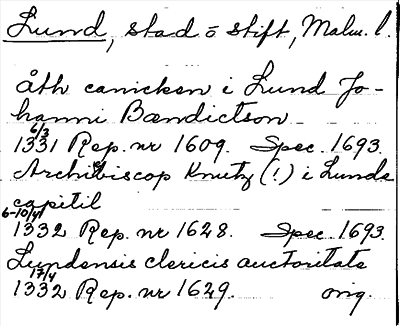 Lund, stad o stift, Malm. l.
åth canicken i Lund Jo-
hanni Bændictson
6/3
1331 Rep. nr 1609. Spec. 1693.
Archibiscop Knutz (!) i Lunds
capitil
6-10/4
1332 Rep. nr 1628. Spec. 1693.
Lundensis clericis auctoritate
17/4
1332 Rep. nr 1629. orig.